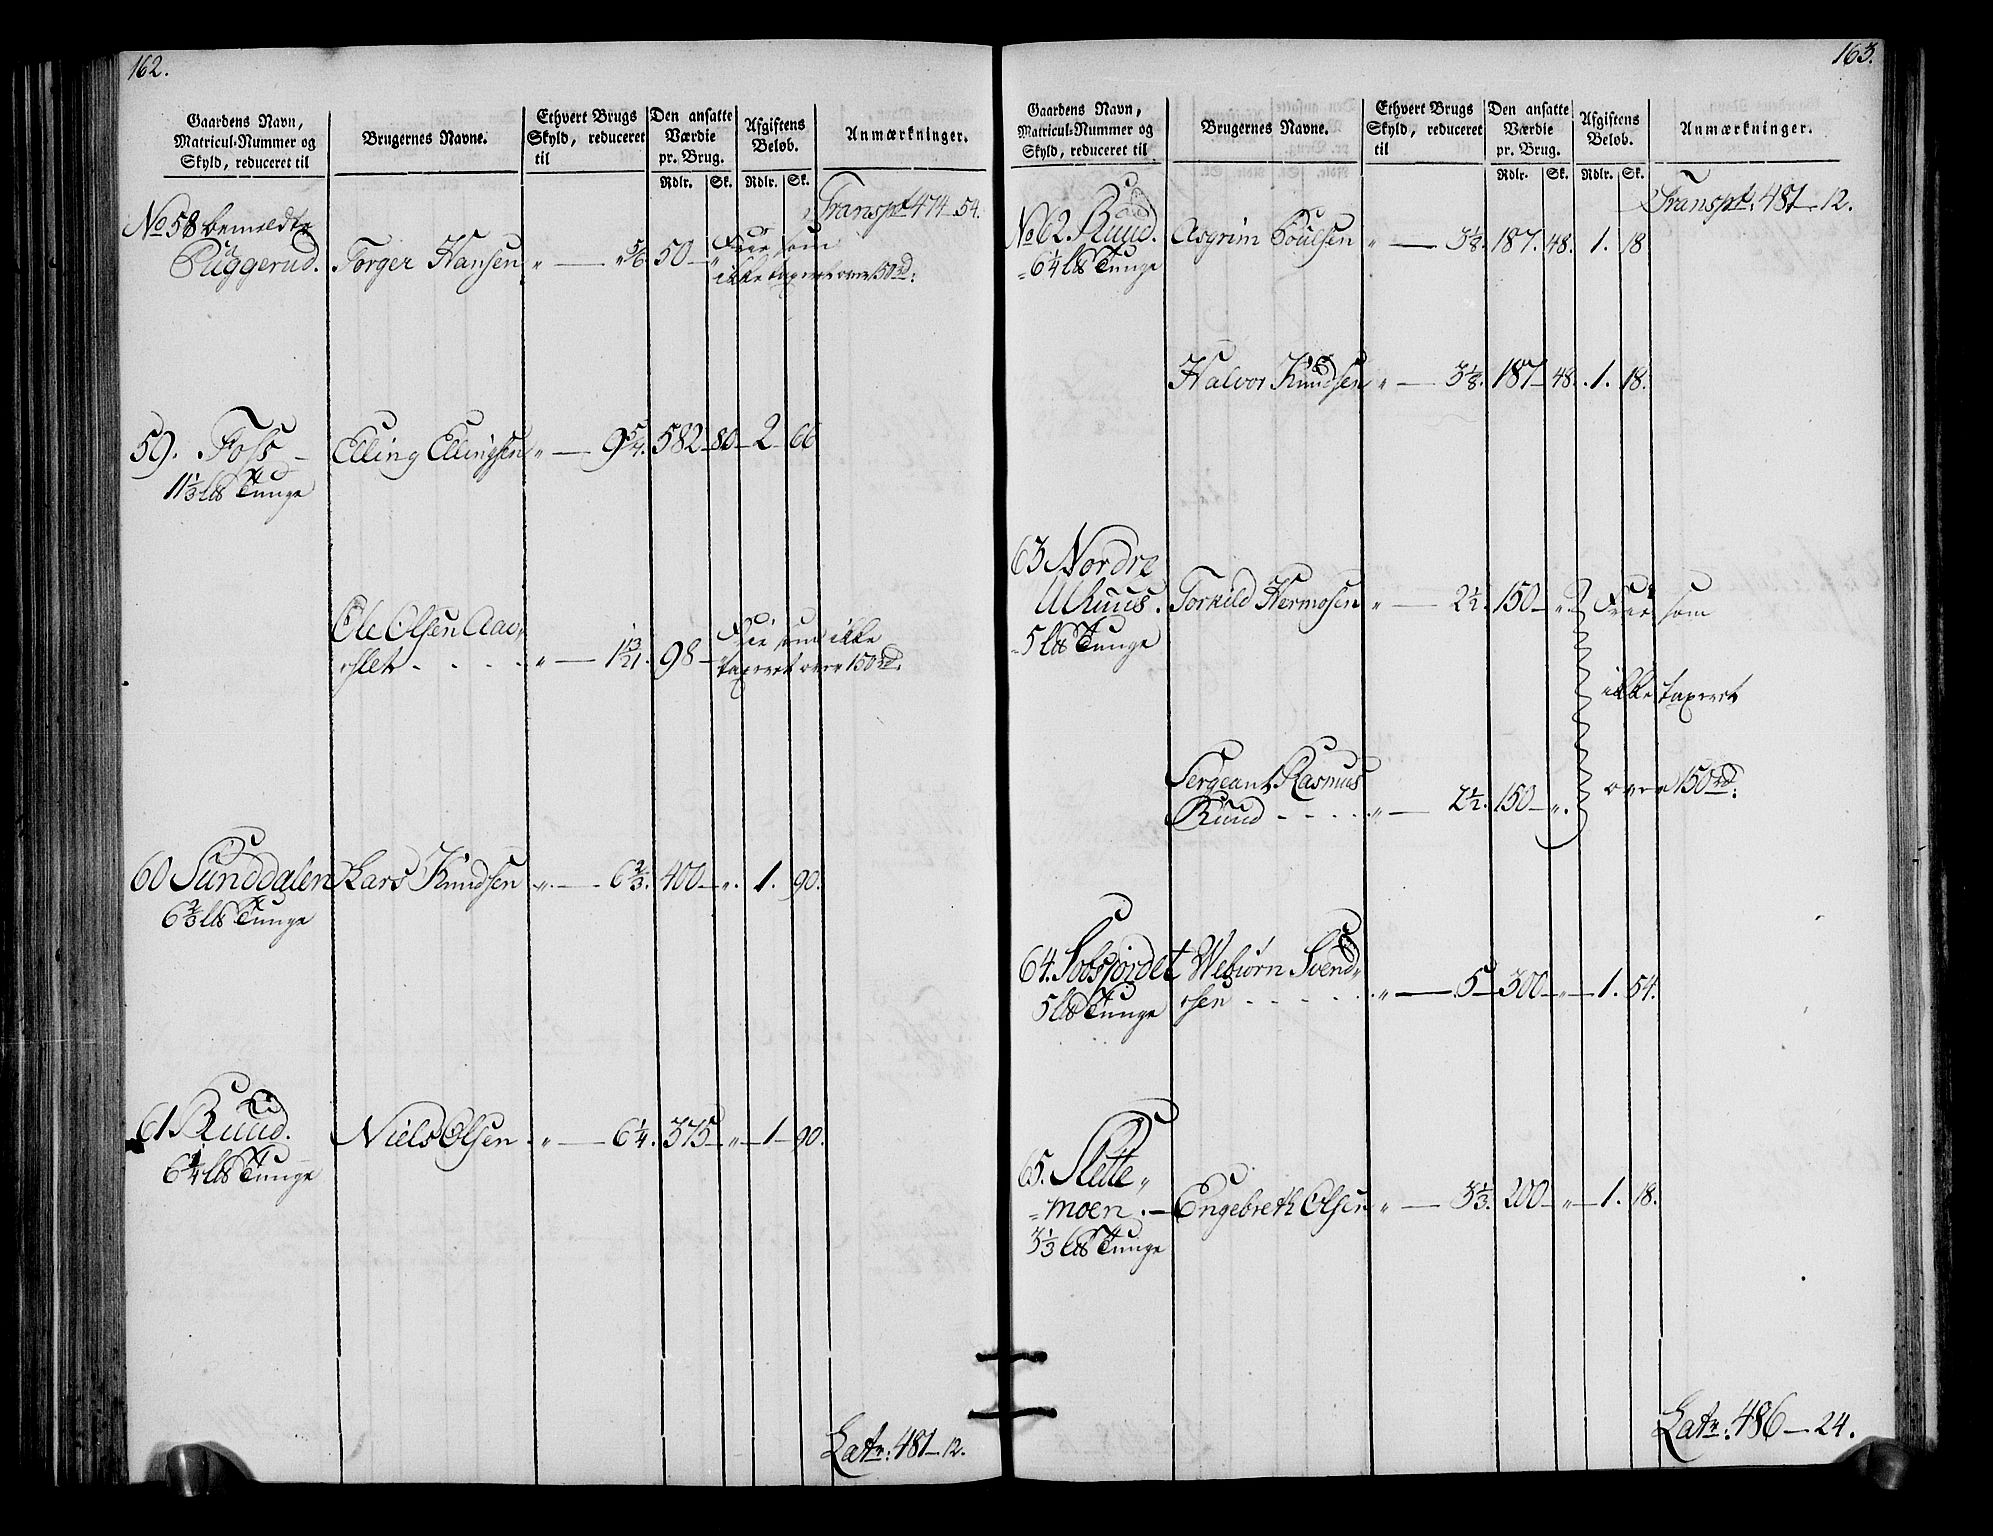 162.
Gaardens Navn, Matricul-Nummer og Skyld, reduceret til
Brugernes Navne.
Ethvert Brugs Skyld, reduceret til
Den ansatte Værdie pr. Brug.
Afgiftens Beløb.
Anmærkninger.
Rdlr. Sk. Rdlr. Sk.
Transpt 474 54.
No 58 bemeldte
Puggerud. Torger Hansen " — " 5/6 50 — " Frie som
ikke taxeret over 150 rd:
59. Foss — Elling Ellingsen " — 9 5/7. 582 — 80 — 2 66
11 1/3 lb Tunge
Ole Olsen Aas,
slet - - - - " — 1 13/21. 98 — " Frie som ikke
taxeret over 150 rd:
60 Sunddalen Lars Knudsen " — 6 2/3. 400 — ". 1. 90.
6 2/3 lb Tunge
61 Ruud. Niels Olsen . " — 6 1/4. 375 — " — 1 — 90.
6 1/4 lb Tunge
Latr: 481 — 12.
163.
Gaardens Navn, Matricul-Nummer og Skyld, reduceret til
Brugernes Navne.
Ethvert Brugs Skyld, reduceret til
Den ansatte Værdie pr. Brug.
Afgiftens Beløb.
Anmærkninger.
Rdlr. Sk. Rdlr. Sk.
Transpt: 481 — 12.
No 62. Ruud. Asgrim Poulsen " — 3 1/8. 187. 48. 1. 18
6 1/4 lb Tunge
Halvor Knudsen " — 3 1/8. 187 — 48. 1. 18.
63 Nordre
Ahuus. Torkild Hermosen " — 2 1/2. 150 — ". Frie som
5 lb Tunge
ikke taxeret
Sergeant Rasmus
Ruud - - - - " — 2 1/2. 150 — ". over 150 rd:
64. Sobsjordet Webiørn Svend,
5 lb Tunge sen - - - - " — 5 — 300 — " — 1. 54.
65. Slette,
moen. — Engebreth Olsen " — 3 1/3. 200 — " — 1. 18.
3 1/3 lb Tunge
Latr: 486 — 24.